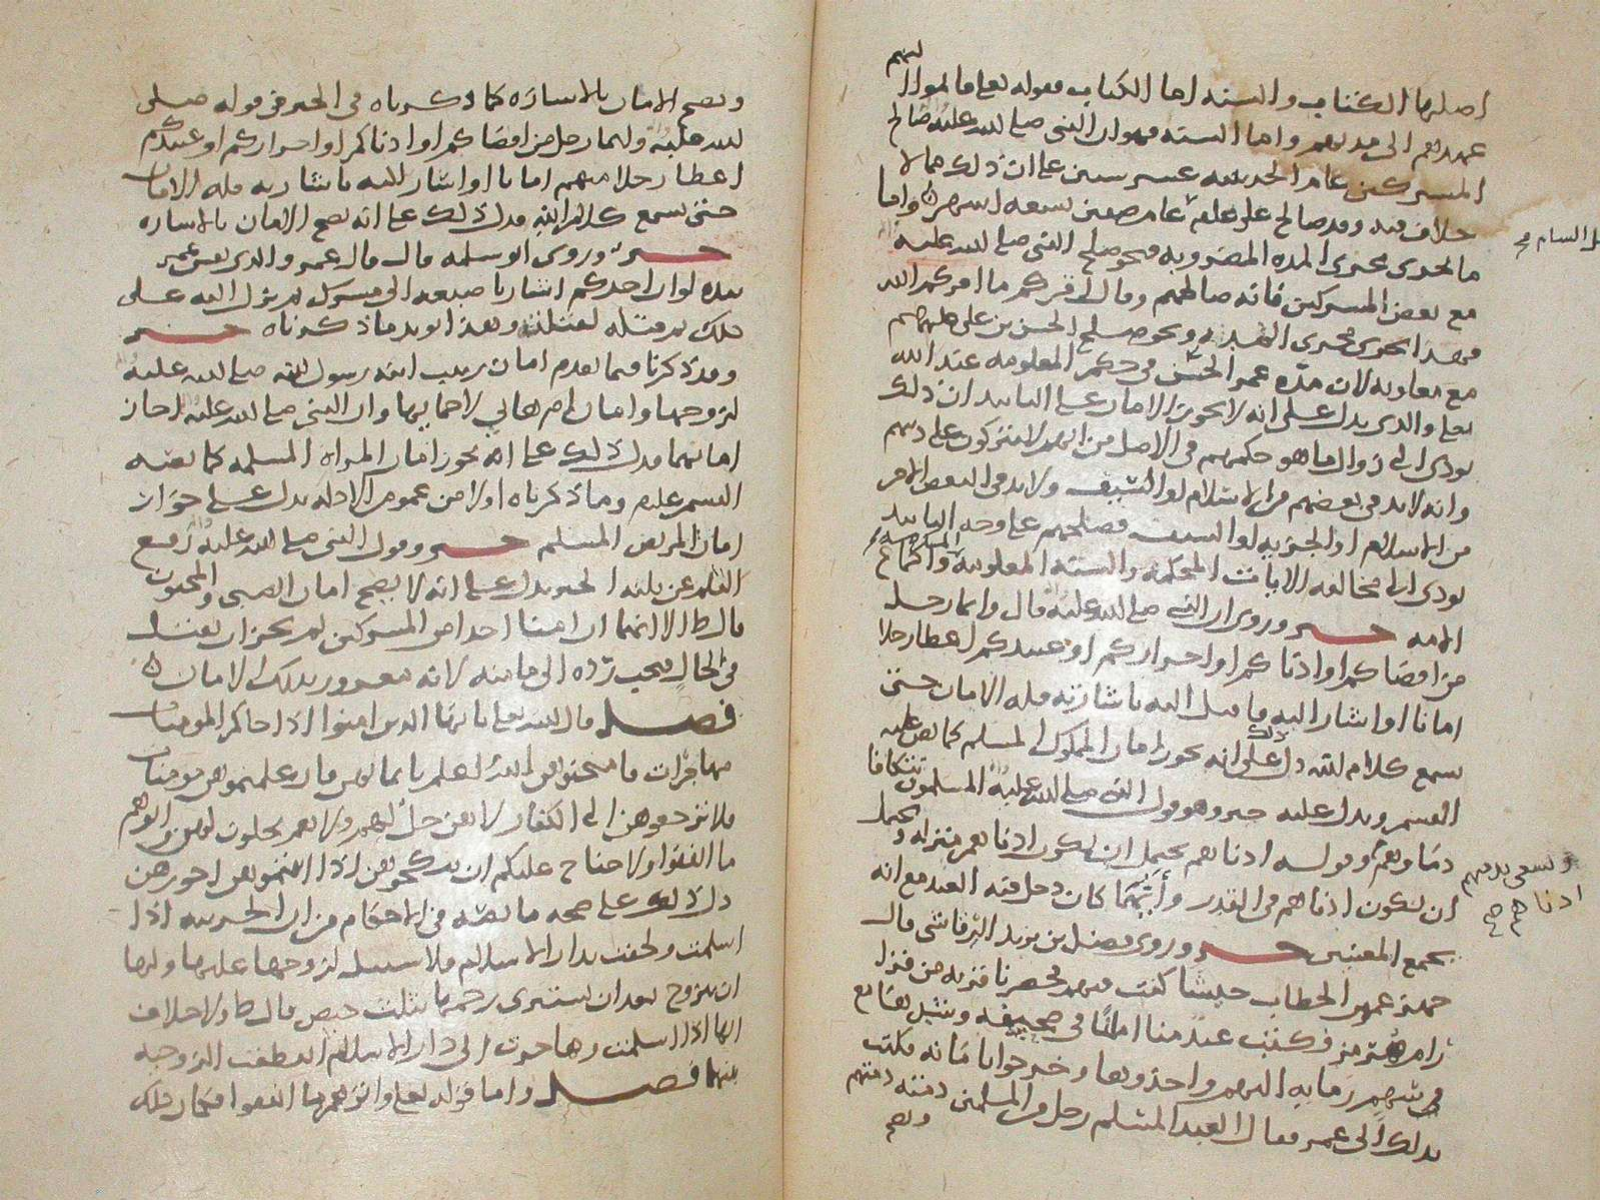 اصلها الكتاب والسنة اما الكتاب فقوله تعالى فاتموا اليهم
عهدهم الى مدتهم واما السنة فهو ان النبي صلى الله عليه صالح
المشركين عام الحديبية عشر سنين على ان ذلك مما لا
خلاف فيه وقد صالح على عام صفين سعه اشهر واما
ما يجري مجرى المده المضروبه فنحو صلح النبي صلى الله عليه
مع بعض المشركين فانه صالحهم وقال اقركم ما اقركم الله
فهذا يجري مجرى التقدير ونحو صلح الحسن بن علي عليهما
مع معاويه لان مده عمر الحسن في حكم المعلومه عند الله
تعالى والذي يدل على انه لا يجوز الامان على التابيد ان ذلك
يودي الى زوال ما هو حكمهم في الاصل من انهم لا يتركون على دينهم
وانه لا بد في بعضهم من الاسلام او السيف ولا بد في البعض الاخر
من الاسلام او الجزيه او السيف فصلحهم على وجه التابيد
يودي الى مخالفه الايات المحكمه والسنه المعلومه واجماع
الامه خبر وروي ان النبي صلى الله عليه قال وايما رجل
من اقصاكم او ادناكم او احراركم او عبيدكم اعطا رجلا
امانا او اشار اليه فاقبل اليه باشارته فله الامان حتى
يسمع كلام الله دل ذلك على انه يجوز امان المملوك المسلم كما نص عليه
القسم ويدل عليه خبر وهو قول النبي صلى الله عليه المسلمون تتكافا
دماوهم وقوله ادناهم يحتمل ان يكون ادناهم منزله ويحتمل
ويسعى بذمتهم
ادناهم صح
ان يكون ادناهم في القدر وأيهما كان دخل فيه العبد مع انه
يجمع المعنيين خبر وروى فضل بن يزيد الرقاشي قال
جهز عمر بن الخطاب جيشا كنت فيهم فحصرنا قريه من قرى
رامهرمز فكتب عبد منا امانا في صحيفه
في سهم رما به اليهم واخذوها وخرجوا بامانه فكتب
بذلك الى عمر فقال العبد المسلم رجل من المسلمين ذمته ذمتهم
ويصح
ويصح الامان بالاشاره كما ذكرناه في الخبر في قوله صلى
الله عليه وايما رجل من اقصاكم او ادناكم او احراركم او عبيدكم
اعطا رجلا منهم امانا او اشار اليه باشارته فله الامان
حتى يسمع كلام الله فدل ذلك على انه يصح الامان بالاشاره
خبر وروى ابو سلمه قال قال عمر والذي نفس عمر
بيده لو ان احدكم اشار باصبعه الى مشرك ثم نزل اليه على
ذلك ثم قتله لقتلته وهذا يويد ما ذكرناه خبر
وقد ذكرنا فيما تقدم امان زينب ابنة رسول الله صلى الله عليه
لزوجها وامان ام هاني لاحمايها وان النبي صلى الله عليه اجاز
امانهما فدل ذلك على انه يجوز امان المراه المسلمه كما نص عليه
القسم عليلم وما ذكرناه اولا من عموم الادله يدل على جواز
امان المريض المسلم خبر وقول النبي صلى الله عليه رفع
القلم عن ثلثه الخبر يدل على انه لا يصح امان الصبي والمجنون
قال ط الا انهما ان امنا احدا من المشركين لم يجز ان يقتل
في الحال فيجب رده الى مامنه لانه مغرور بذلك الامان
فصل قال الله تعالى يايها الذين امنوا اذا جاكم المومنات
مهاجرات فامتحنوهن الله اعلم بايمانهن فان علمتموهن مومنات
فلا ترجعوهن الى الكفار لا هن حل لهم ولا هم يحلون لهن واتوهم
ما انفقوا ولا جناح عليكم ان تنكحوهن اذا اتيتموهن اجورهن
دل ذلك على صحه ما نص في الاحكام من ان الحربيه اذا
اسلمت ولحقت بدار الاسلام فلا سبيل لزوجها عليها ولها
ان تتزوج بعد ان تستبري رحمها بثلث حيض قال ط ولا خلاف
انها اذا اسلمت وهاجرت الى دار الاسلام انقطعت الزوجيه
بينهما فصل واما قوله تعالى واتوهم ما انفقوا فكان ذلك